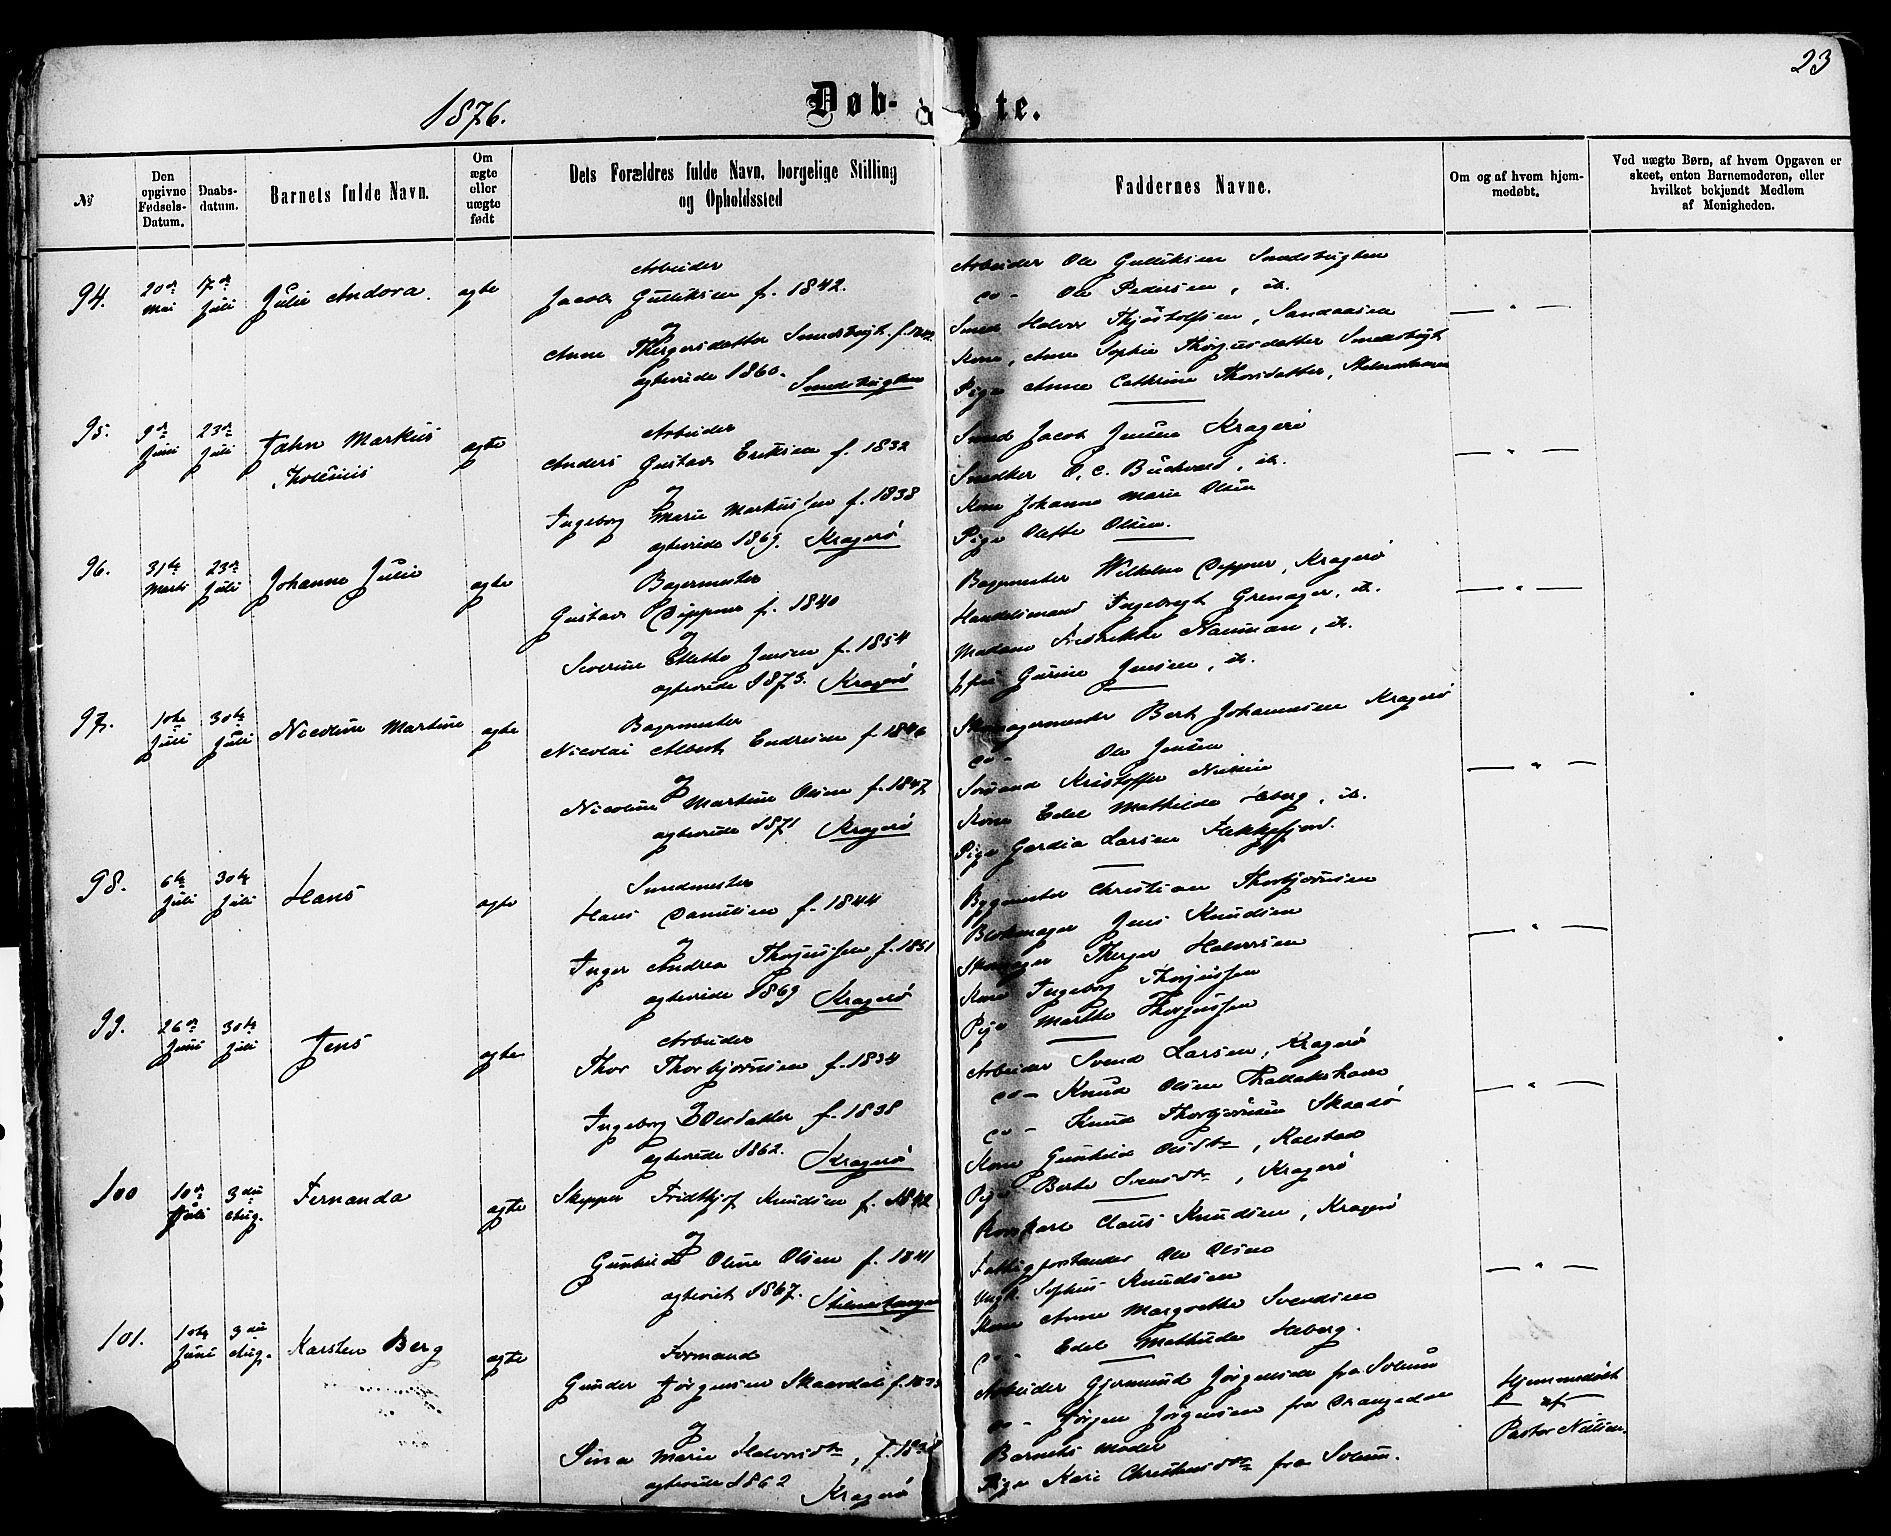 23
1876.
Døb- te.
№
Den opgivne Fødsels-Datum.
Daabs-datum.
Barnets fulde Navn.
Om ægte eller uægte født
Dets Forældres fulde Navn, borgelige Stilling og Opholdssted
Faddernes Navne.
Om og af hvem hjem-medøbt.
Ved uægte Børn, af hvem Opgaven er skeet, enten Barnemoderen, eller hvilket bekjendt Medlem af Menigheden.
94. 20de Mai 7de Juli Julie Andora. ægte
Arbeider
Jacob Gulliksen f. 1842.
og
Anne Thergersdatter
ægteviede 1860.
Arbeider Ole Gulliksen
do- Ole Pedersen, ib.
Smed Halvor
Kone, Anne Sophie
Pige Anne Cathrine Thorsdatter,
— " —
95. 9de Juni 23de Juli Jahn Markus
ægte
Arbeider
Anders Gustav Eriksen f. 1832
og
Ingeborg Marie Markussen f. 1838
ægteviede 1869. Kragerø
Smed Jacob Jensen Kragerø
Snedker O. C. Buchvard, ib.
Kone Johanne Marie Olsen
Pige Olette Olsen.
— " —
96. 31te Marts 23de Juli Johanne Julie ægte
Bagermester
Gustav Dippner f. 1840
og
Severine Elette Jensen f. 1854
ægteviede 1873. Kragerø
Bagermester Wilhelm Dippner, Kragerø
Handelsmand Ingebregt Grenager, ib.
Madam Fredrikke Nauman, ib.
Jfru Gurine Jensen, ib.
— " —
97. 10de Juli 30te Juli Nicoline Martine ægte
Bagermester
Nicolai Albert Endresen f. 1846
og
Nicoline Martine Olsen f. 1847
ægteviede 1871 Kragerø
Skomagermester Bert Johannesen Kragerø
do- Ole Jensen
Sømand Kristoffer Nilsen
Kone Edel Mathilde Heberg, ib.
Pige Gardia Larsen Flekkefjord.
— " —
98. 6te Juli 30te Juli Hans ægte
Smedmester
Hans Danielsen f. 1844
og
Inger Andrea Thorjussen f. 1851
ægteviede 1869 Kragerø
Bygmester Christian Thorbjørnsen
Blokmager Jens Knudsen
Skomager Therger Halvorsen
Kone Ingeborg Thorjussen
Pige Marthe Thorjussen
— " —
99. 26de Juni 30te Juli Jens ægte
Arbeider
Thor Thorbjørnsen f. 1834
og
Ingeborg Olsdatter f. 1838
ægteviede 1862. Kragerø
Arbeider Svend Larsen, Kragerø
do- Knud Olsen
do- Knud Thorbjørnsen Skaadø
Kone Gunhild Olsdtr, Kalstad
Pige Berte Svensdtr, Kragerø
— " —
100 10de Juli 3die Aug. Fernanda ægte
Skipper Fridthjof Knudsen f. 1842
og
Gunhild Oline Olsen f. 1841
ægteviet 1867.
Claus Knudsen, Kragerø
Fattigforstander Ole Olsen
Ungk. Sophus Knudsen
Kone Anne Margrethe Svendsen
do- Edel Mathilde Heberg.
— " —
101. 10de Juni 3die Aug. Karsten Berg ægte
Formand
Gunder Jørgensen Skaardal
og
Sina Marie Halvorsdtr, f. 1838
ægteviede 1862 Kragerø
Arbeider Gjermund Jørgensen fra Solum
do- Jørgen Jørgensen fra Drangedal
Barnets Moder
Pige Kari Christensdtr fra Solum.
Hjemmedøbt
af
Pastor Nilsen.